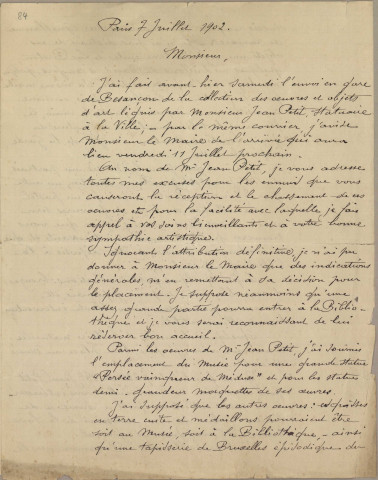 84
Paris 7 Juillet 1902.
Monsieur,
J'ai fait avant-hier samedi l'envoi en gare
de Besançon de la collection des œuvres et objets
d'art légués par Monsieur Jean Petit, statuaire
à la Ville; – par le même courrier j'avise
Monsieur le Maire de l'arrivée qui aura
lieu vendredi 11 Juillet prochain.
Au nom de Mr Jean Petit, je vous adresse
toutes mes excuses pour les ennuis que vous
causeront la réception et le classement de ces
œuvres et pour la facilité avec laquelle je fais
appel à vos soins bienveillants et à votre bonne
sympathie artistique.
Ignorant l'attribution définitive, je n'ai pu
donner à Monsieur le Maire que des indications
générales, m'en remettant à sa décision pour
le placement. Je suppose néanmoins qu'une
assez grande partie pourra entrer à la Biblio-
thèque et je vous serai reconnaissant de leur
réserver bon accueil.
Parmi les œuvres de Mr Jean Petit j'ai soumis
l'emplacement du Musée pour une grande statue
"Persée vainqueur de Méduse" et pour les statues
demi-grandeur maquettes de ses œuvres.
J'ai supposé que les autres œuvres: esquisses
en terre cuite et médaillons pourraient être
soit au Musée, soit à la Bibliothèque, – ainsi
qu'une tapisserie de Bruxelles épisodique de